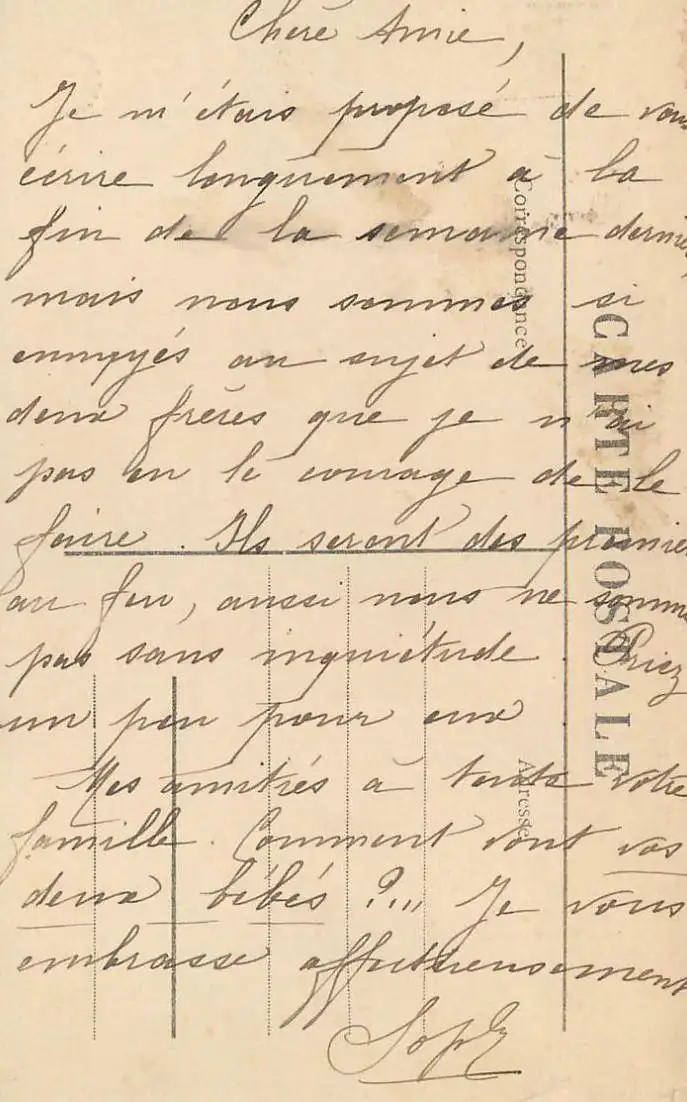 Chère Amie,
Je m'étais proposé de vous
écrire longuement à la
fin de la semaine dernière,
mais nous sommes si
ennuyés au sujet de mes
deux frères que je n'ai
pas eu le courage de le
faire. Ils seront des premiers
au feu, aussi nous ne sommes
pas sans inquiétude. Priez
un peu pour eux
Mes amitiés à toute votre
famille. Comment vont vos
deux bébés ?... Je vous
embrasse affectueusement
CARTE POSTALE
Correspondance
Adresse